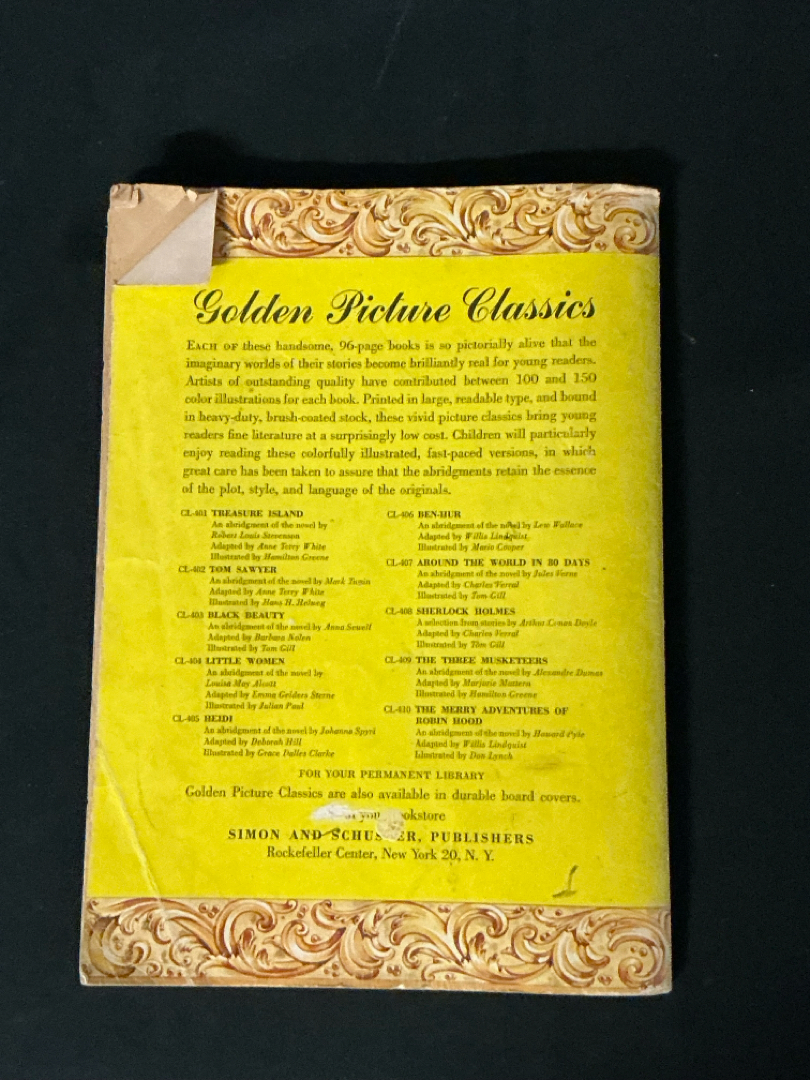 Golden Picture Classics
EACH OF these handsome, 96-page books is so pictorially alive that the
imaginary worlds of their stories become brilliantly real for young readers.
Artists of outstanding quality have contributed between 100 and 150
color illustrations for each book. Printed in large, readable type, and bound
in heavy-duty, brush-coated stock, these vivid picture classics bring young
readers fine literature at a surprisingly low cost. Children will particularly
enjoy reading these colorfully illustrated, fast-paced versions, in which
great care has been taken to assure that the abridgments retain the essence
of the plot, style, and language of the originals.
CL-401 TREASURE ISLAND
An abridgment of the novel by
Robert Louis Stevenson
Adapted by Anne Terry White
Illustrated by Hamilton Greene
CL-402 TOM SAWYER
An abridgment of the novel by Mark Twain
Adapted by Anne Terry White
Illustrated by Hans H. Helweg
CL-403 BLACK BEAUTY
An abridgment of the novel by Anna Sewell
Adapted by Barbara Nolen
Illustrated by Tom Gill
CL-404 LITTLE WOMEN
An abridgment of the novel by
Louisa May Alcott
Adapted by Emma Gelders Sterne
Illustrated by Julian Paul
CL-405 HEIDI
An abridgment of the novel by Johanna Spyri
Adapted by Deborah Hill
Illustrated by Grace Dalles Clarke
CL-406 BEN-HUR
An abridgment of the novel by Lew Wallace
Adapted by Willis Lindquist
Illustrated by Mario Cooper
CL-407 AROUND THE WORLD IN 80 DAYS
An abridgment of the novel by Jules Verne
Adapted by Charles Verral
Illustrated by Tom Gill
CL-408 SHERLOCK HOLMES
A selection from stories by Arthur Conan Doyle
Adapted by Charles Verral
Illustrated by Tom Gill
CL-409 THE THREE MUSKETEERS
An abridgment of the novel by Alexandre Dumas
Adapted by Marjorie Mattern
Illustrated by Hamilton Greene
CL-410 THE MERRY ADVENTURES OF
ROBIN HOOD
An abridgment of the novel by Howard Pyle
Adapted by Willis Lindquist
Illustrated by Don Lynch
FOR YOUR PERMANENT LIBRARY
Golden Picture Classics are also available in durable board covers.
SIMON AND SCHUSTER, PUBLISHERS
Rockefeller Center, New York 20, N. Y.